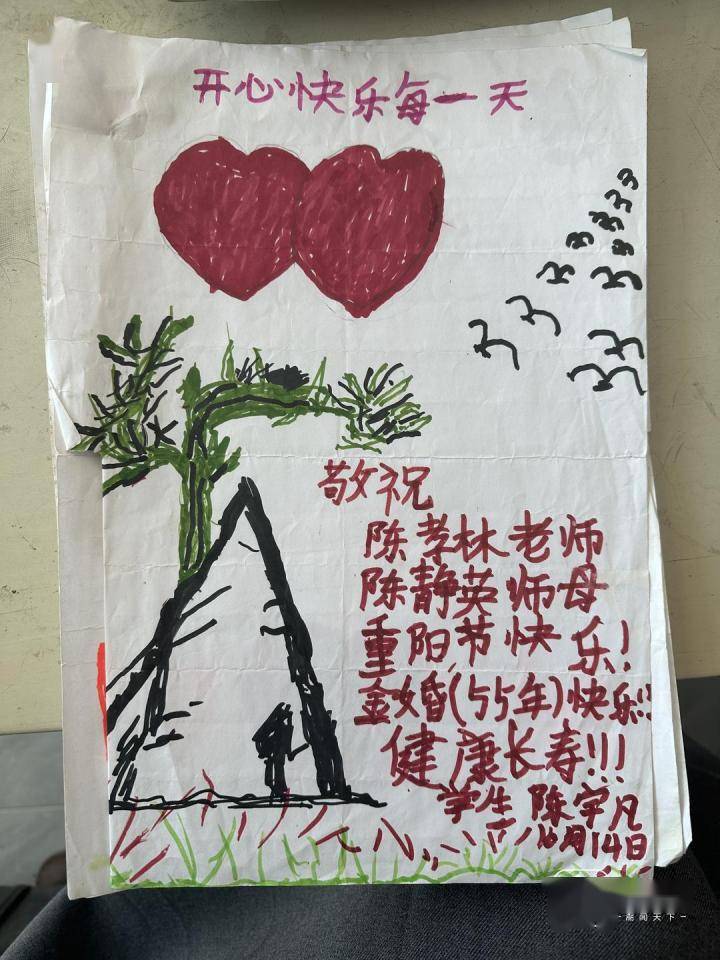 开心快乐每一天
敬祝
陈孝林老师
陈静英师母
重阳节快乐!
金婚(55年)快乐!!
健康长寿!!!
学生 陈宇凡
10月14日
-潮闻天下-